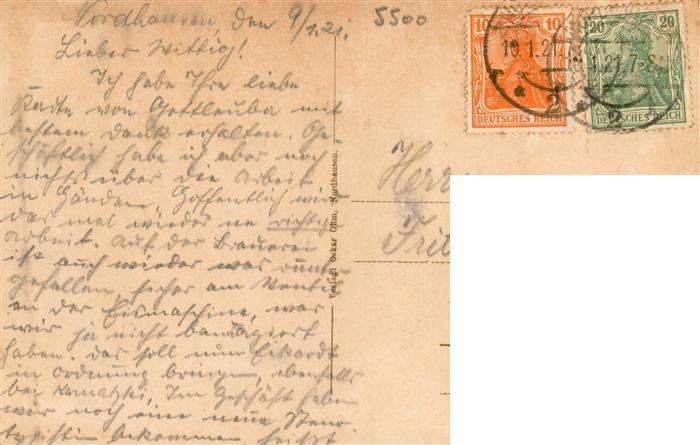 Nordhausen, den 9/1.21.
Lieber Wittig!
Ich habe Ihre liebe
Karte von Gottleuba mit
bestem Dank erhalten. Ge-
schäftlich habe ich aber noch
nichts über die Arbeit
in Händen. Hoffentlich wird
das mal wieder ne richtige
Arbeit. Auf der Brauerei
ist auch wieder was runter
gefallen sicher am Ventil
an der Eismaschine, was
wir ja nicht
haben. Das soll nun Eckardt
in Ordnung bringen, ebenfalls
bei Im Geschäft haben
wir noch eine neue Steno-
typistin bekommen heißt
5500
10 10
DEUTSCHES REICH
20 20
DEUTSCHES REICH
10.1.21
2
Verlag: Oskar Ohm, Nordhausen.
Herr
Fritz